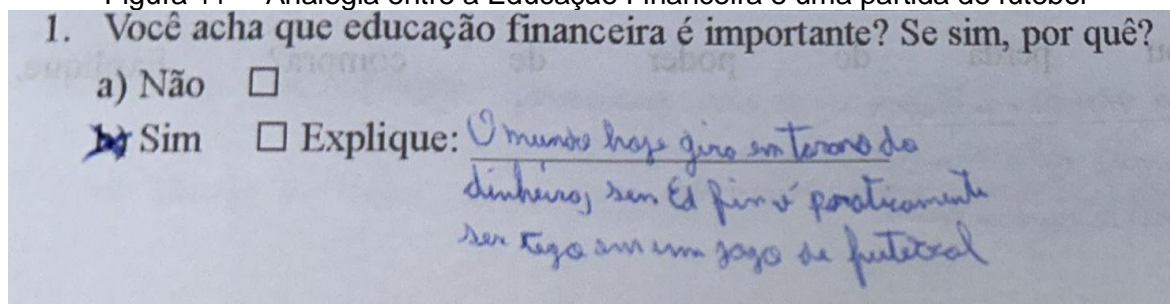 Figura 11 – Analogia entre a Educação Financeira e uma partida de futebol
1. Você acha que educação financeira é importante? Se sim, por quê?
a) Não □
b) Sim □ Explique: O mundo hoje gira em torno do
dinheiro, sem Ed fin é praticamente
ser cego em um jogo de futebol